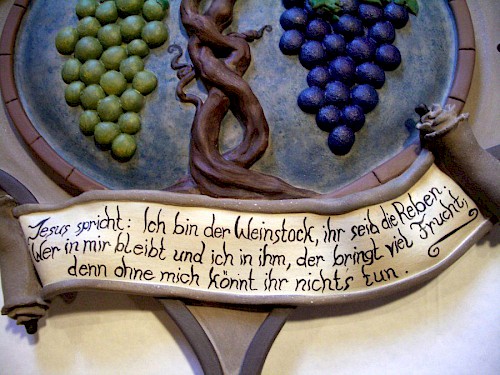 Jesus spricht: Ich bin der Weinstock, ihr seid die Reben.
Wer in mir bleibt und ich in ihm, der bringt viel Frucht,
denn ohne mich könnt ihr nichts tun.